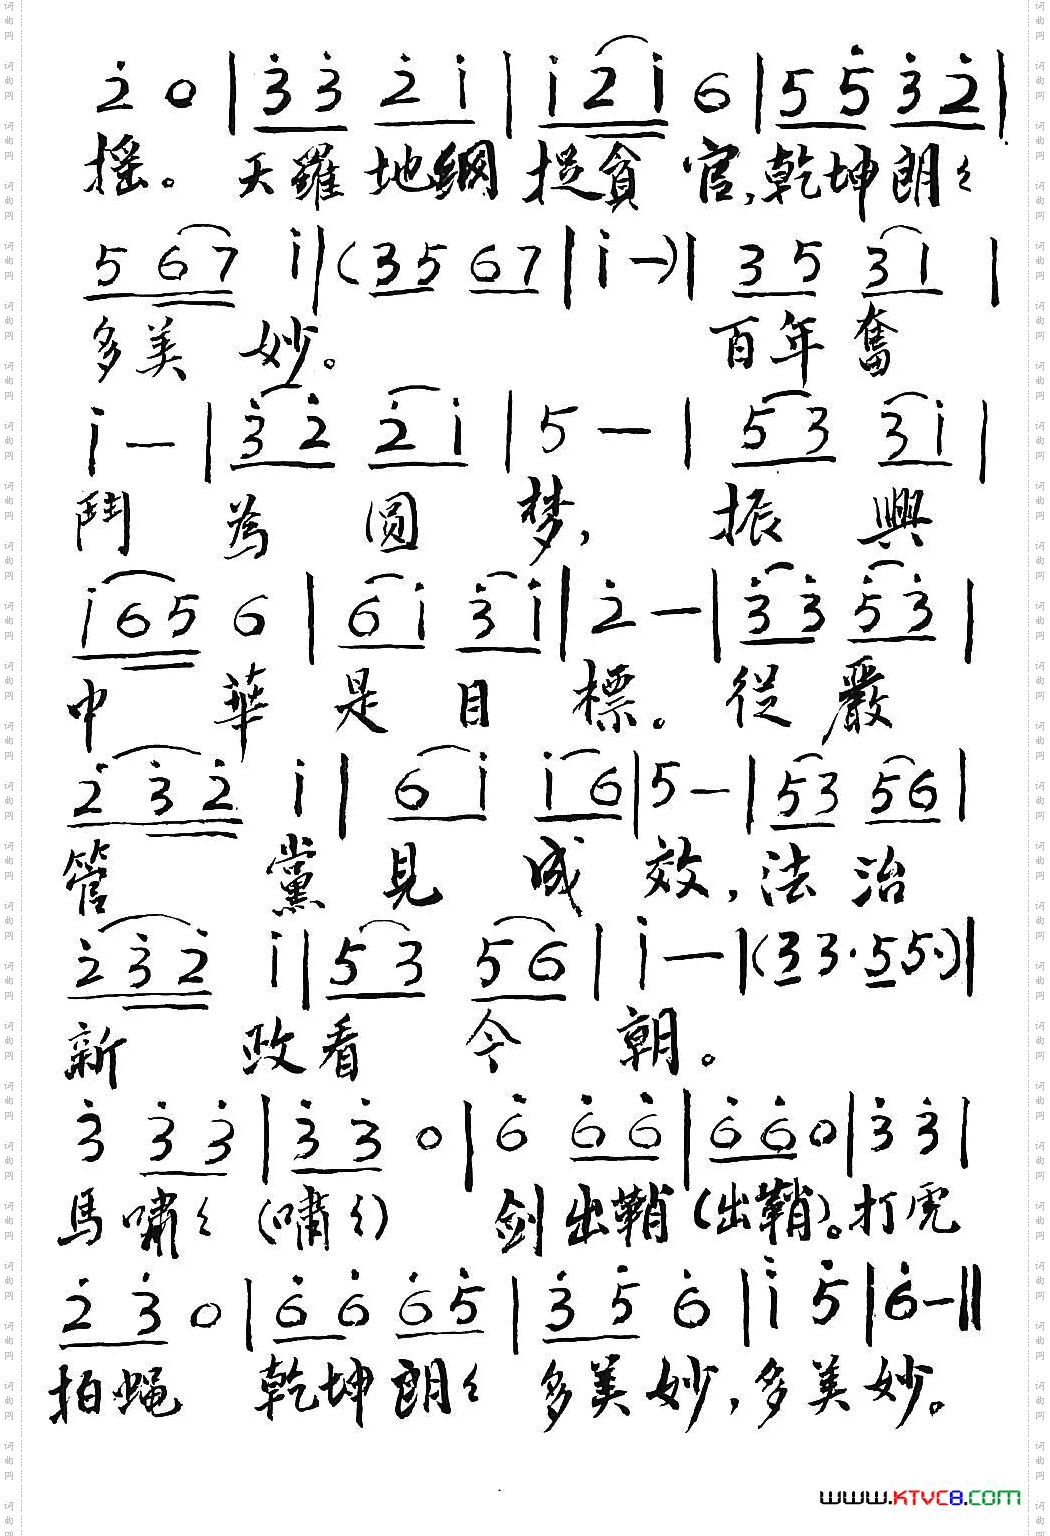 2̇ 0 | 3̇ 3̇ 2̇ i | i 2̇ i 6 | 5 5̇ 3̇ 2̇ |
摇。天羅地網捉貪官,乾坤朗〻
5 6 7 i | (3 5 6 7 | i —) | 3 5 3 1 |
多美妙。百年奮
i — | 3̇ 2̇ 2̇ i | 5 — | 5 3 3 i |
鬥為圆梦,振興
i 6 5 6 | 6 i 3̇ i | 2̇ — | 3̇ 3̇ 5̇ 3̇ |
中華是目標。從嚴
2̇ 3̇ 2̇ i | 6 i i 6 | 5 — | 5 3 5 6 |
管黨見成效,法治
2̇ 3̇ 2̇ i | 5 3 5 6 | i — | (3 3· 5 5·) |
新政看今朝。
3̇ 3̇ 3̇ | 3̇ 3̇ 0 | 6̇ 6̇ 6̇ | 6̇ 6̇ 0 | 3̇ 3̇ |
馬嘯〻(嘯〻)剑出鞘(出鞘)。打虎
2̇ 3̇ 0 | 6̇ 6̇ 6̇ 5̇ | 3̇ 5̇ 6̇ | i̇ 5̇ | 6̇ — ||
拍蝇乾坤朗〻多美妙,多美妙。
www.KTVC8.COM
词曲网